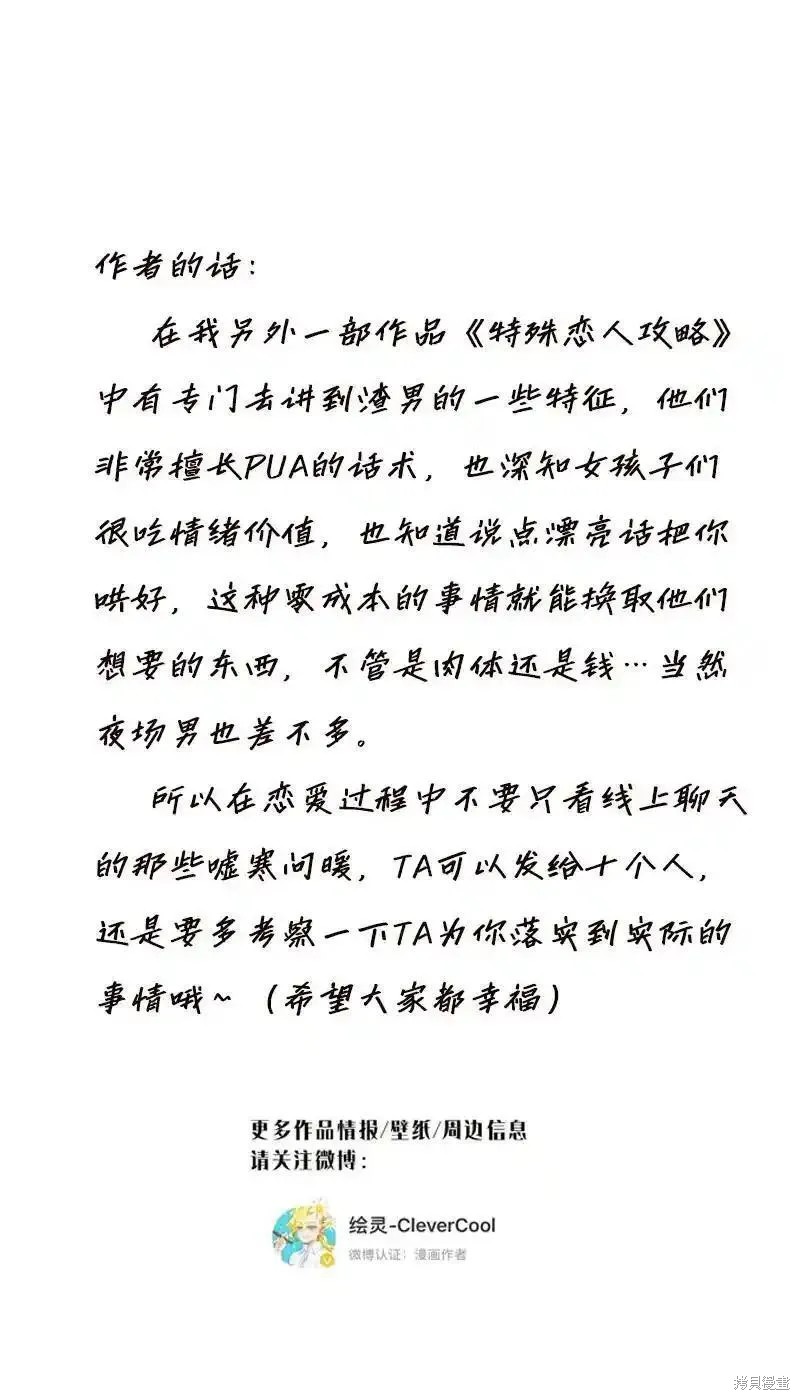 作者的话：
在我另外一部作品《特殊恋人攻略》
中有专门去讲到渣男的一些特征，他们
非常擅长PUA的话术，也深知女孩子们
很吃情绪价值，也知道说点漂亮话把你
哄好，这种零成本的事情就能换取他们
想要的东西，不管是肉体还是钱…当然
夜场男也差不多。
所以在恋爱过程中不要只看线上聊天
的那些嘘寒问暖，TA可以发给十个人，
还是要多考察一下TA为你落实到实际的
事情哦~（希望大家都幸福）
更多作品情报/壁纸/周边信息
请关注微博：
绘灵-CleverCool
微博认证：漫画作者
拷贝漫畫